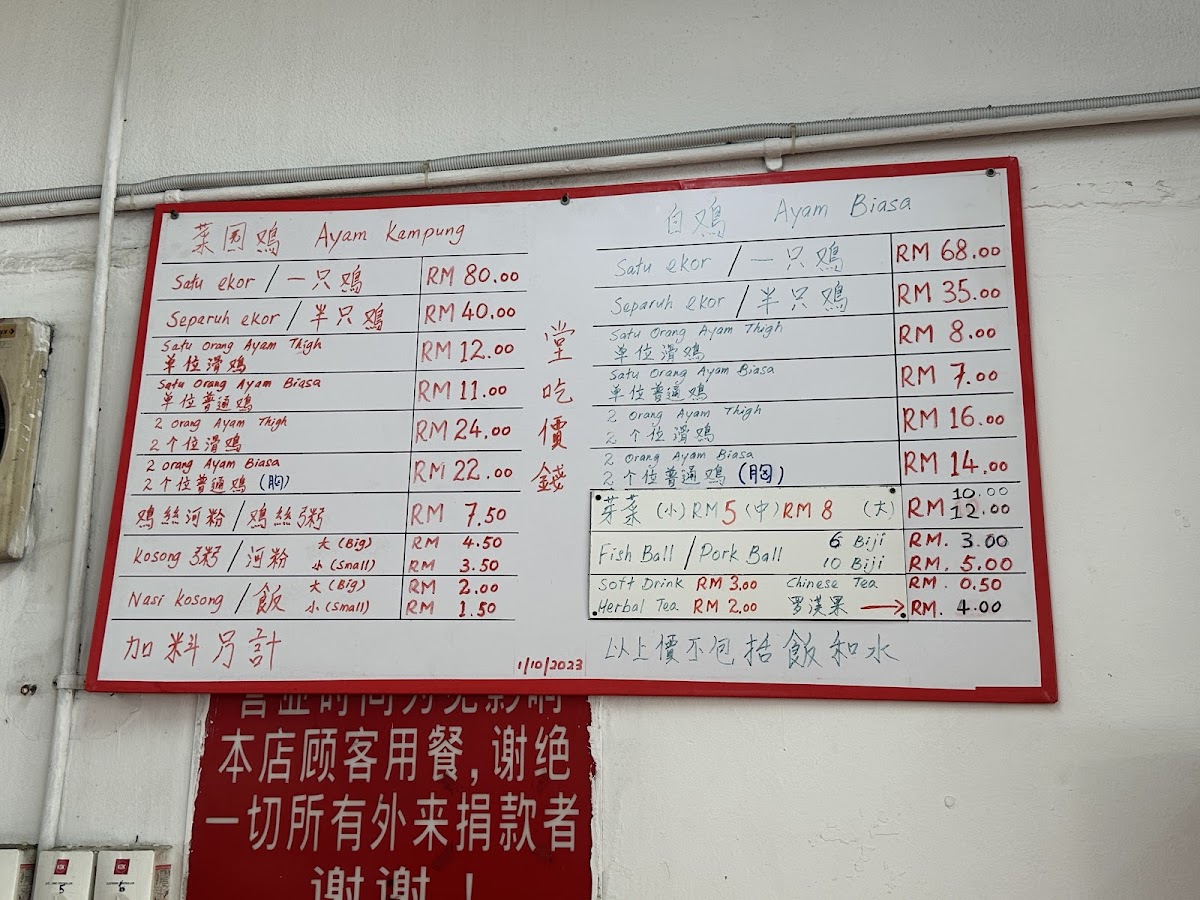 菜园鸡 Ayam Kampung
Satu ekor / 一只鸡 RM 80.00
Separuh ekor / 半只鸡 RM 40.00
Satu Orang Ayam Thigh
单位滑鸡 RM 12.00
Satu Orang Ayam Biasa
单位普通鸡 RM 11.00
2 Orang Ayam Thigh
2个位滑鸡 RM 24.00
2 Orang Ayam Biasa
2个位普通鸡 (胸) RM 22.00
鸡丝河粉 / 鸡丝粥 RM 7.50
Kosong 粥 / 河粉 大 (Big) RM 4.50
小 (Small) RM 3.50
Nasi Kosong / 飯 大 (Big) RM 2.00
小 (Small) RM 1.50
加料另計
堂吃價錢
1/10/2023
白鸡 Ayam Biasa
Satu ekor / 一只鸡 RM 68.00
Separuh ekor / 半只鸡 RM 35.00
Satu Orang Ayam Thigh
单位滑鸡 RM 8.00
Satu Orang Ayam Biasa
单位普通鸡 RM 7.00
2 Orang Ayam Thigh
2个位滑鸡 RM 16.00
2 Orang Ayam Biasa
2个位普通鸡 (胸) RM 14.00
芽菜 (小) RM 5 (中) RM 8 (大) RM 10.00
12.00
Fish Ball / Pork Ball 6 Biji RM. 3.00
10 Biji RM. 5.00
Soft Drink RM 3.00 Chinese Tea RM. 0.50
Herbal Tea RM 2.00 罗漢果 → RM. 4.00
以上價不包括飯和水
营业时间为免影响
本店顾客用餐,谢绝
一切所有外来捐款者
谢谢!
KDK
5
KDK
6